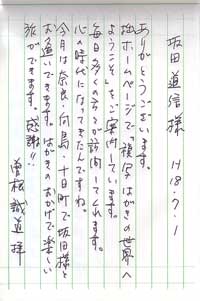 坂田道信様 H18.7.1
ありがとうございます。
拙ホームページで"複写はがきの世界へ
ようこそ"をご案内しています。
毎日多くの方が訪問してくれます。
心の時代になってきたんですね。
今月は奈良、向島、十日町で坂田様と
お逢いできます。はがきのおかげで楽しい
旅ができます。感謝!!
曽根誠道拝